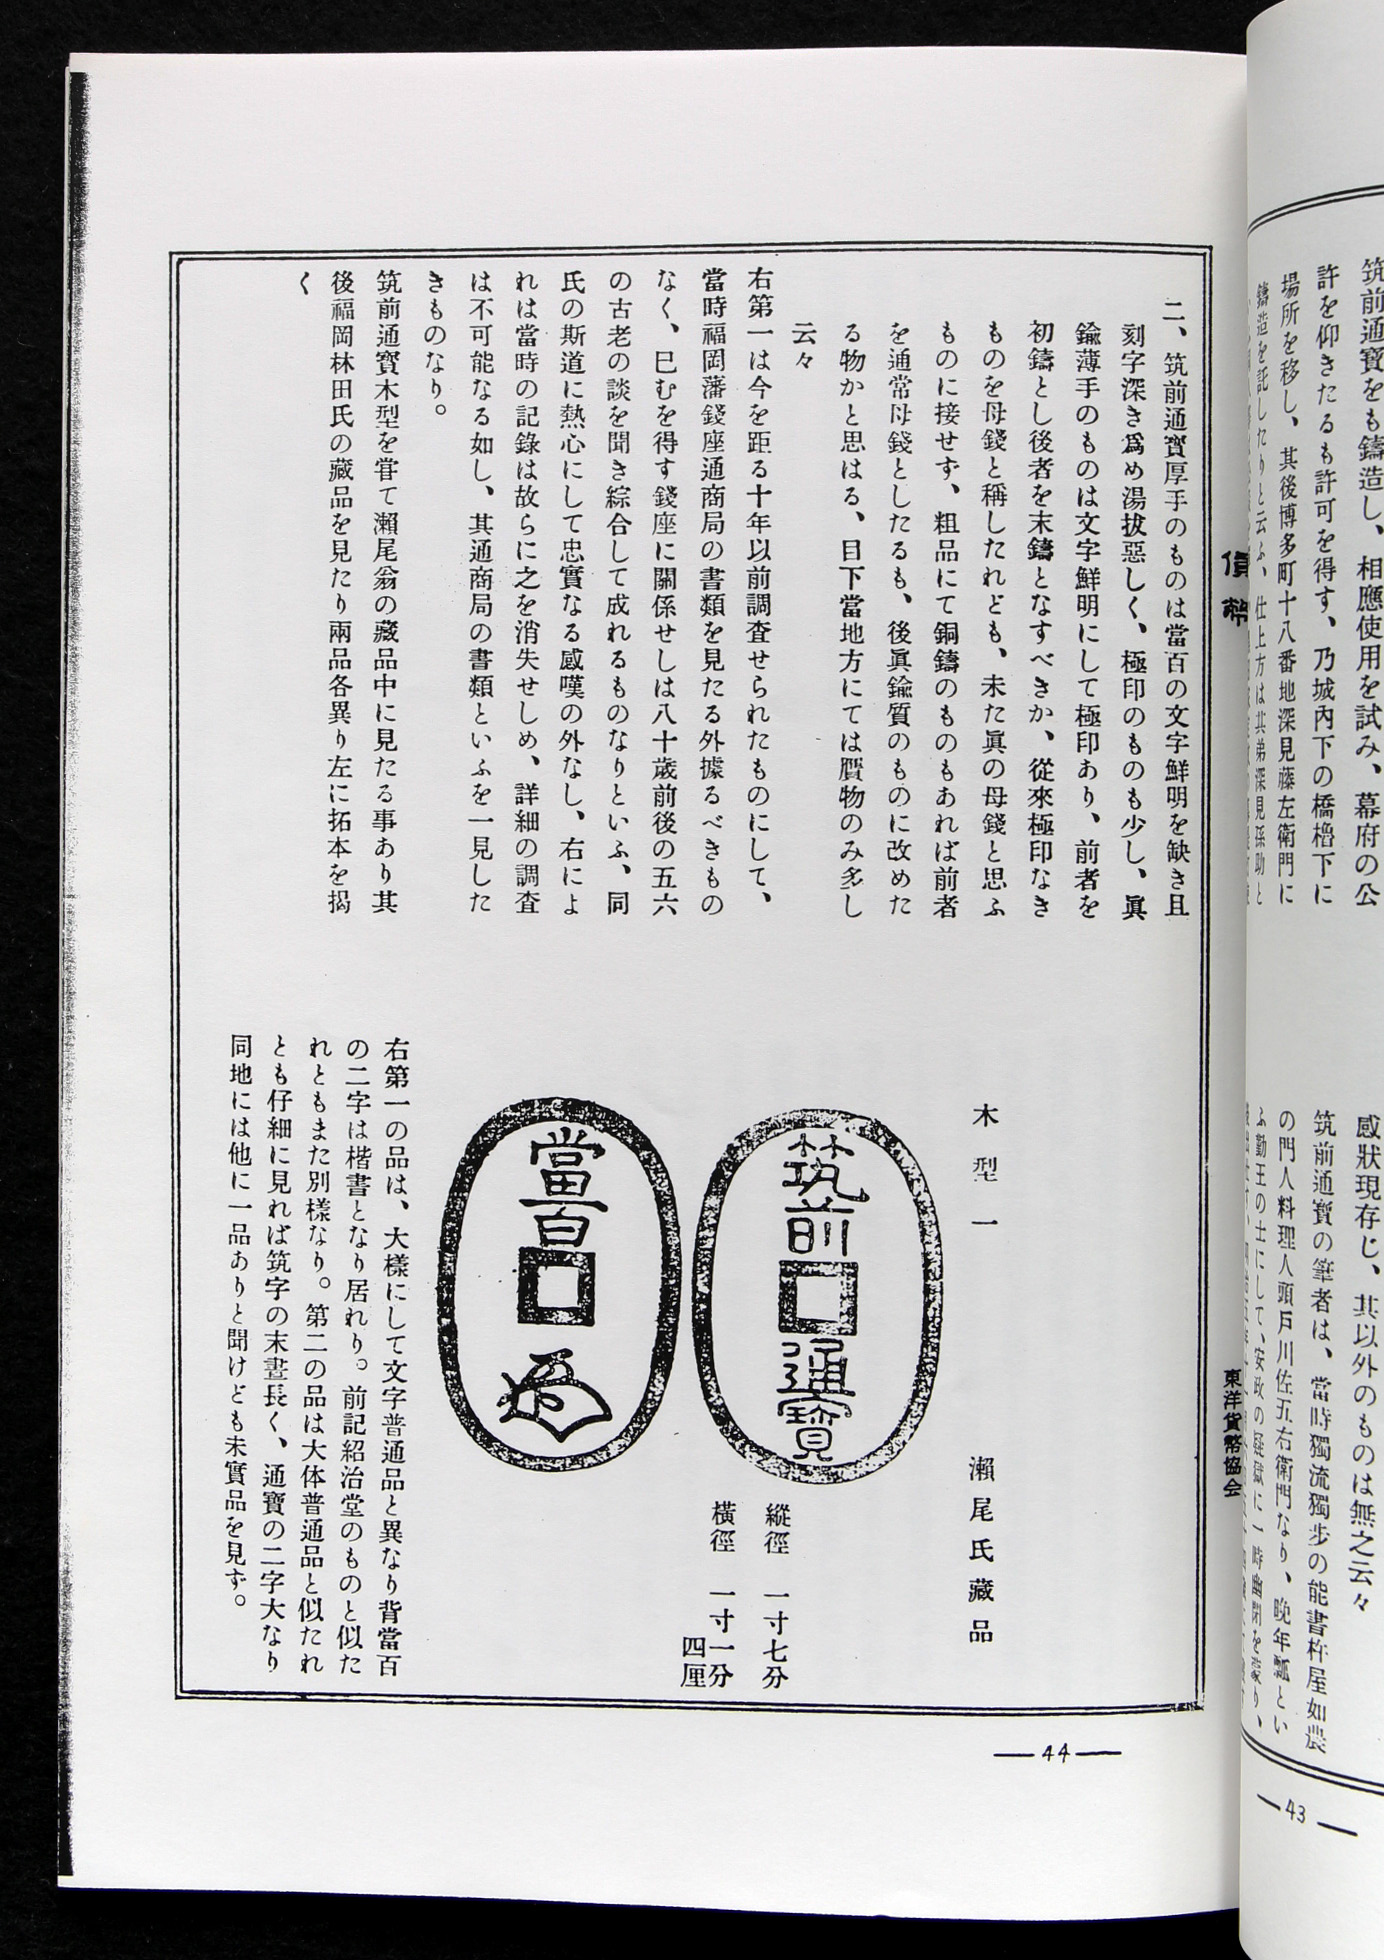 筑前通寳をも鑄造し、相應使用を試み、幕府の公
許を仰きたるも許可を得す、乃城內下の橋櫓下に
場所を移し、其後博多町十八番地深見藤左衛門に
鑄造を託したりと云ふ、仕上方は其弟深見孫助と
感狀現存じ、其以外のものは無之云々
筑前通寳の筆者は、當時獨流獨步の能書杵屋如農
の門人料理人頭戸川佐五右衛門なり、晩年瓢とい
ふ勤王の士にして、安政の疑獄に一時幽閉を蒙り、
43
貨幣
東洋貨幣協会
二、筑前通寳厚手のものは當百の文字鮮明を缺き且
刻字深き爲め湯拔惡しく、極印のものも少し、眞
鍮薄手のものは文字鮮明にして極印あり、前者を
初鑄とし後者を末鑄となすべきか、從來極印なき
ものを母錢と稱したれども、未た眞の母錢と思ふ
ものに接せず、粗品にて銅鑄のものもあれば前者
を通常母錢としたるも、後眞鍮質のものに改めた
る物かと思はる、目下當地方にては贋物のみ多し
云々
右第一は今を距る十年以前調査せられたものにして、
當時福岡藩錢座通商局の書類を見たる外據るべきもの
なく、巳むを得す錢座に關係せしは八十歳前後の五六
の古老の談を聞き綜合して成れるものなりといふ、同
氏の斯道に熱心にして忠實なる感嘆の外なし、右によ
れは當時の記錄は故らに之を消失せしめ、詳細の調査
は不可能なる如し、其通商局の書類といふを一見した
きものなり。
筑前通寳木型を甞て瀨尾翁の藏品中に見たる事あり其
後福岡林田氏の藏品を見たり兩品各異り左に拓本を揭
く
木型一
瀨尾氏藏品
筑前通寳
當百
縱徑 一寸七分
橫徑 一寸一分
四厘
右第一の品は、大樣にして文字普通品と異なり背當百
の二字は楷書となり居れり。前記紹治堂のものと似た
れともまた別樣なり。第二の品は大体普通品と似たれ
とも仔細に見れば筑字の末畫長く、通寶の二字大なり
同地には他に一品ありと聞けども未實品を見ず。
44